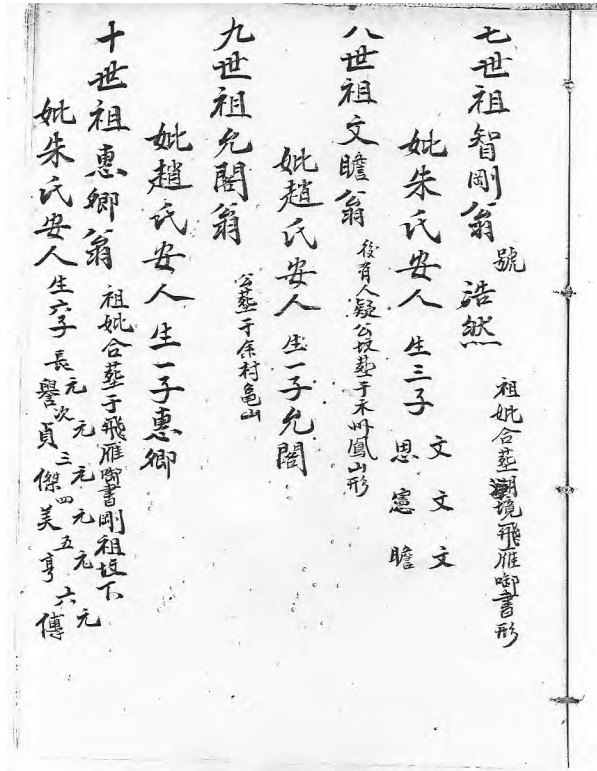 七世祖智剛翁 號浩然 祖妣合塟潮境飛雁啣書形
妣朱氏安人 生三子 文思 文憲 文瞻
八世祖文瞻翁 後有人疑公坟塟于禾州鳳山形
妣趙氏安人 生一子允閣
九世祖允閣翁 公塟于余村龜山
妣趙氏安人 生一子惠卿
十世祖惠卿翁 祖妣合塟于飛雁啣書剛祖坟下
妣朱氏安人 生六子 長元譽 次元貞 三元傑 四元美 五元亨 六元傳